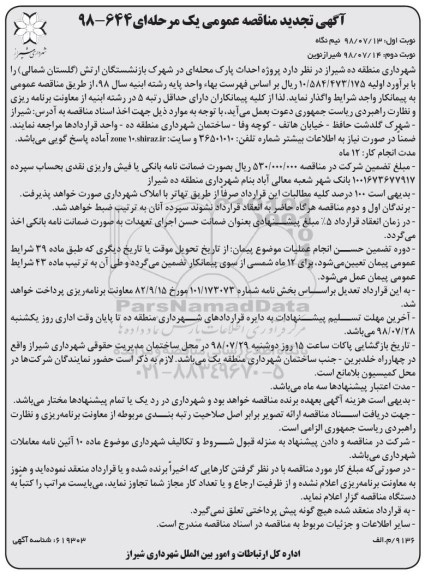 آگهی تجدید مناقصه عمومی یک مرحله‌ای ۶۴۴-۹۸
شهرداری شیراز
نوبت اول: ۹۸/۰۷/۱۳ نیم نگاه
نوبت دوم: ۹۸/۰۷/۱۴ شیرازنوین
شهرداری منطقه ده شیراز در نظر دارد پروژه احداث پارک محله‌ای در شهرک بازنشستگان ارتش (گلستان شمالی) را
با برآورد اولیه ۱۰/۵۸۴/۴۷۳/۱۷۵ ریال بر اساس فهرست بهاء واحد پایه رشته ابنیه سال ۹۸، از طریق مناقصه عمومی
به پیمانکار واجد شرایط واگذار نماید. لذا از کلیه پیمانکاران دارای حداقل رتبه ۵ در رشته ابنیه از معاونت برنامه ریزی
و نظارت راهبردی ریاست جمهوری دعوت بعمل می‌آید، با توجه به موارد ذیل جهت اخذ اسناد مناقصه به آدرس: شیراز
- شهرک گلدشت حافظ - خیابان هاتف - کوچه وفا - ساختمان شهرداری منطقه ده - واحد قراردادها مراجعه نمایند.
ضمناً در صورت نیاز به اطلاعات بیشتر شماره تلفن: ۳۶۵۰۱۰۱۰ و سایت: zone 10.shiraz.ir آماده پاسخ گویی می‌باشد.
مدت انجام کار: ۱۲ ماه
- مبلغ تضمین شرکت در مناقصه ۵۳۰/۰۰۰/۰۰۰ ریال بصورت ضمانت نامه بانکی یا فیش واریزی نقدی بحساب سپرده
۱۰۰۱۶۷۳۶۷۷۹۱۷ بانک شهر شعبه معالی آباد بنام شهرداری منطقه ده شیراز
- بدیهی است ۱۰۰ درصد کلیه مطالبات این قرارداد صرفا از طریق تهاتر با املاک شهرداری صورت خواهد پذیرفت.
- برندگان اول و دوم مناقصه هرگاه حاضر به انعقاد قرارداد نشوند سپرده آنان به ترتیب ضبط خواهد شد.
- در زمان انعقاد قرارداد ۵٪ مبلغ پیشنهادی بعنوان ضمانت حسن اجرای تعهدات به صورت ضمانت نامه بانکی اخذ
می‌گردد.
- دوره تضمین حسن انجام عملیات موضوع پیمان: از تاریخ تحویل موقت یا تاریخ دیگری که طبق ماده ۳۹ شرایط
عمومی پیمان تعیین‌می‌شود، برای ۱۲ ماه شمسی از سوی پیمانکار تضمین می‌گردد و طی آن به ترتیب ماده ۴۳ شرایط
عمومی پیمان عمل می‌شود.
- به این قرارداد تعدیل براساس بخش نامه شماره ۱۰۱/۱۷۳۰۷۳ مورخ ۸۲/۹/۱۵ معاونت برنامه‌ریزی پرداخت خواهد
شد.
- آخرین مهلت تسلیم پیشنهادات به دایره قراردادهای شهرداری منطقه ده تا پایان وقت اداری روز یکشنبه
۹۸/۰۷/۲۸ می‌باشد.
- تاریخ بازگشایی پاکات ساعت ۱۵ روز دوشنبه ۹۸/۰۷/۲۹ در محل ساختمان مدیریت حقوقی شهرداری شیراز واقع
در چهارراه خلدبرین - جنب ساختمان شهرداری منطقه یک می‌باشد. لازم به ذکر است حضور نمایندگان شرکت‌ها در
محل کمیسیون بلامانع است.
- مدت اعتبار پیشنهادها سه ماه می‌باشد.
- بدیهی است هزینه آگهی بعهده برنده مناقصه خواهد بود و شهرداری در رد یک یا تمام پیشنهادها مختار می‌باشد.
- جهت دریافت اسناد مناقصه ارائه تصویر برابر اصل صلاحیت رتبه بندی مربوطه از معاونت برنامه‌ریزی و نظارت
راهبردی ریاست جمهوری الزامی است.
- شرکت در مناقصه و دادن پیشنهاد به منزله قبول شروط و تکالیف شهرداری موضوع ماده ۱۰ آئین نامه معاملات
شهرداری می‌باشد.
- در صورتی‌که مبلغ کار مورد مناقصه با در نظر گرفتن کارهایی که اخیراً برنده شده و یا قرارداد منعقد نموده‌اید و هنوز
به معاونت برنامه‌ریزی اعلام نشده و از ظرفیت ارجاع و یا تعداد کار مجاز شما تجاوز نماید، می‌بایست مراتب را کتباً به
دستگاه مناقصه گزار اعلام نماید.
- به قرارداد منعقد شده هیچ گونه پیش پرداختی تعلق نمی‌گیرد.
- سایر اطلاعات و جزئیات مربوط به مناقصه در اسناد مناقصه مندرج است.
۹۱۳۶/م.الف
۶۱۹۳۰۳: شناسه آگهی
اداره کل ارتباطات و امور بین الملل شهرداری شیراز
ParsNamadData
۰۲۱-۸۸۳۴۹۶۷۰-۵